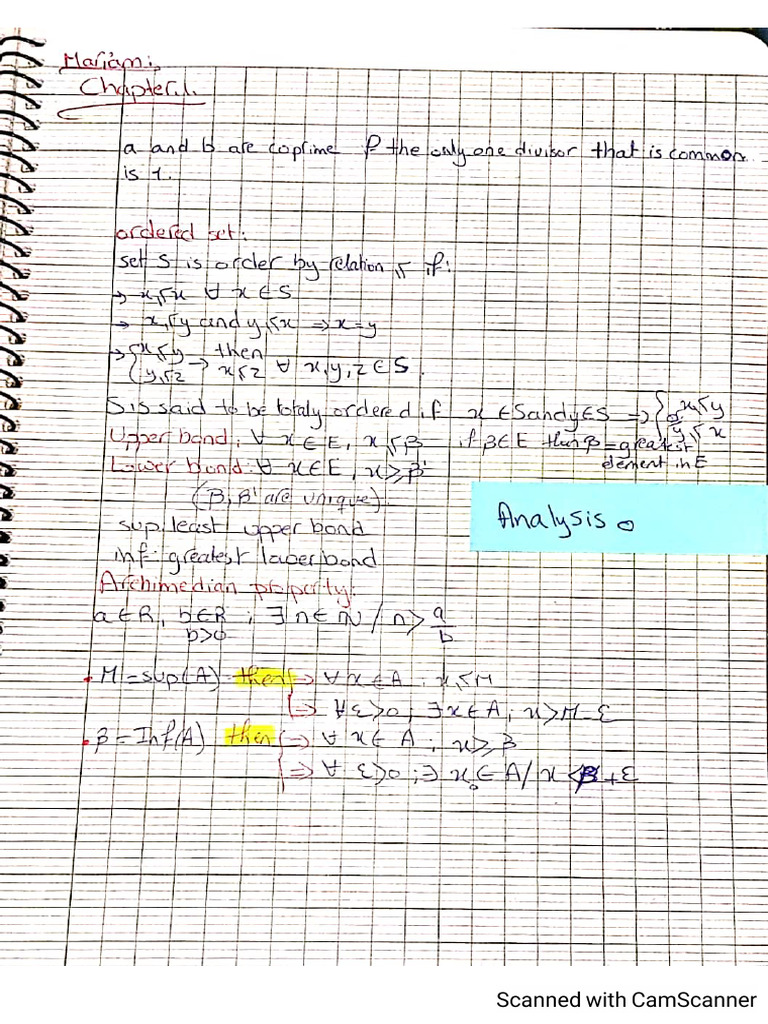 Mariam:
Chapter 1.
a and b are coprime if the only one divisor that is common
is 1.
ordered set:
set S is order by relation ≤ if:
→ x ≤ x ∀ x ∈ S
→ x ≤ y and y ≤ x ⇒ x = y
→ { x ≤ y → then
{ y ≤ z x ≤ z ∀ x, y, z ∈ S.
S is said to be totaly ordered if x ∈ S and y ∈ S ⇒ { x ≤ y
or y ≤ x
Upper bond: ∀ x ∈ E, x ≤ β if β ∈ E then β = greatest
element in E
Lower bond: ∀ x ∈ E, x ≥ β'
(β, β' are unique)
sup: least upper bond
inf: greatest lower bond
Analysis
Archimedian property:
a ∈ R, b ∈ R ; ∃ n ∈ N / n > a/b
b > 0
• M = sup(A) then → ∀ x ∈ A ; x ≤ M
⇒ ∀ ε > 0 ; ∃ x ∈ A ; x > M - ε
• β = Inf(A) then → ∀ x ∈ A ; x ≥ β
⇒ ∀ ε > 0 ; ∃ x₀ ∈ A / x < β + ε
Scanned with CamScanner